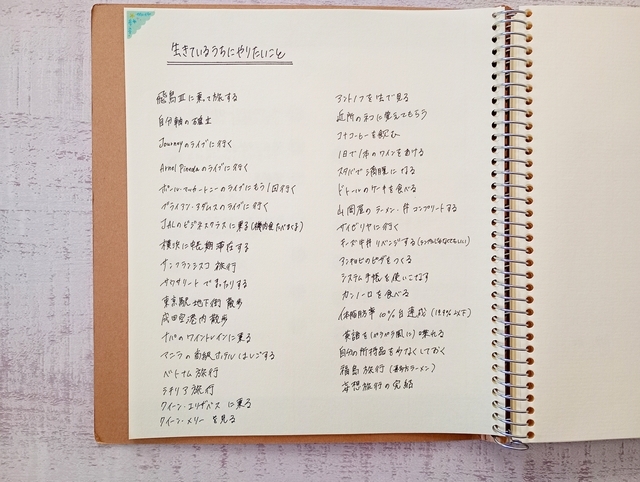 生きているうちにやりたいこと
飛鳥Ⅲに乗って旅する
自分軸の確立
Journeyのライブに行く
Arnel Pinedaのライブに行く
ポール・マッカートニーのライブにもう1回行く
ブライアン・アダムスのライブに行く
JALのビジネスクラスに乗る(機内食たべまくる)
横浜に短期滞在する
サンフランシスコ 旅行
サウサリートでまったりする
東京駅 地下街 散歩
成田空港内 散歩
ナパのワイントレインに乗る
マニラの高級ホテルはしごする
ベトナム旅行
シチリア旅行
クイーン・エリザベスに乗る
クイーン・メリーを見る
アントノフを生で見る
近所のネコに覚えてもらう
コナコーヒーを飲む
1日で1本のワインをあける
スタバで満腹になる
ドトールのケーキを食べる
山岡家のラーメン・丼コンプリートする
サイゼリヤに行く
キング牛丼リベンジする
アンチョビのピザをつくる
システム手帳を使いこなす
カンノーロを食べる
体脂肪率10%台達成(19.9%以下)
英語を(ペラペラ風に)喋れる
自分の所持品を少なくしておく
福島旅行(喜多方ラーメン)
妄想旅行の完結